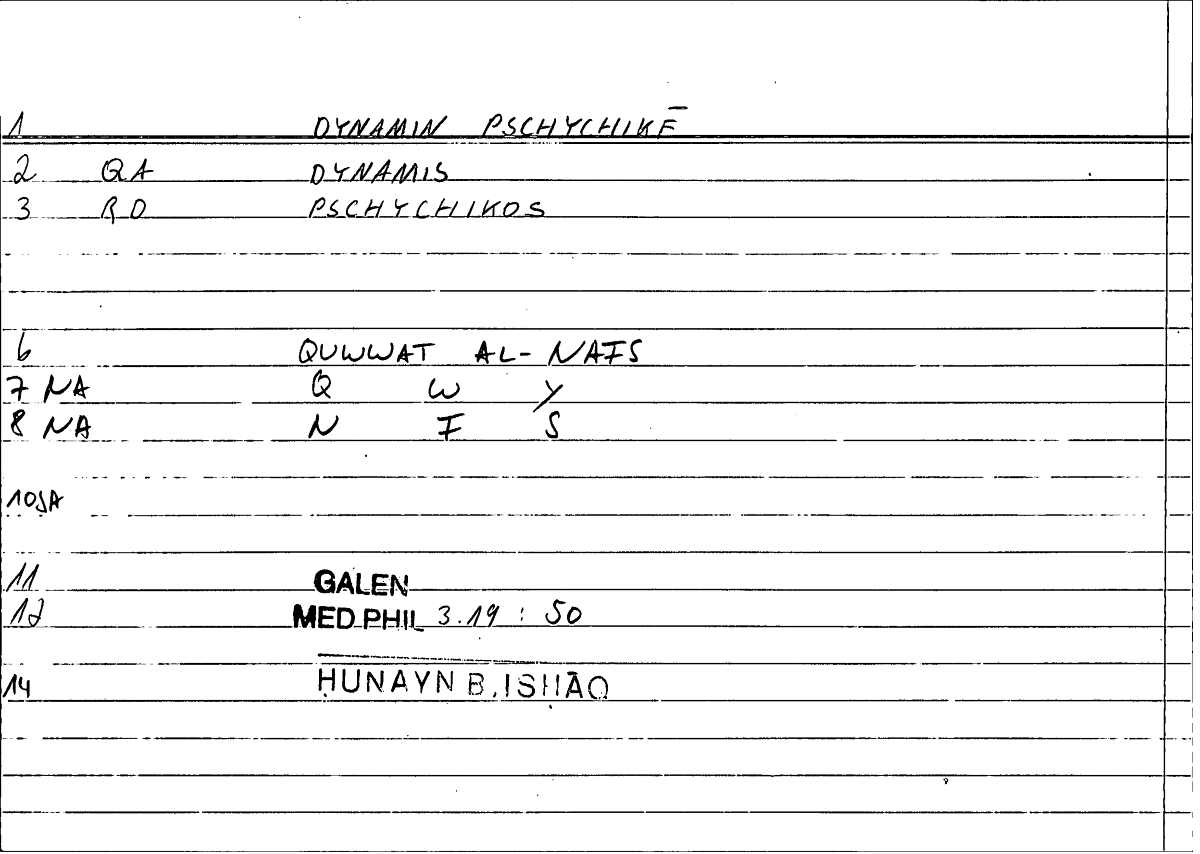 1 DYNAMIN PSCHYCHIKĒ
2 QA DYNAMIS
3 RD PSCHYCHIKOS
6 QUWWAT AL-NAFS
7 NA Q W Y
8 NA N F S
10 JA
11 GALEN
12 MED PHIL 3.19 : 50
14 ḤUNAYN B. ISḤĀQ